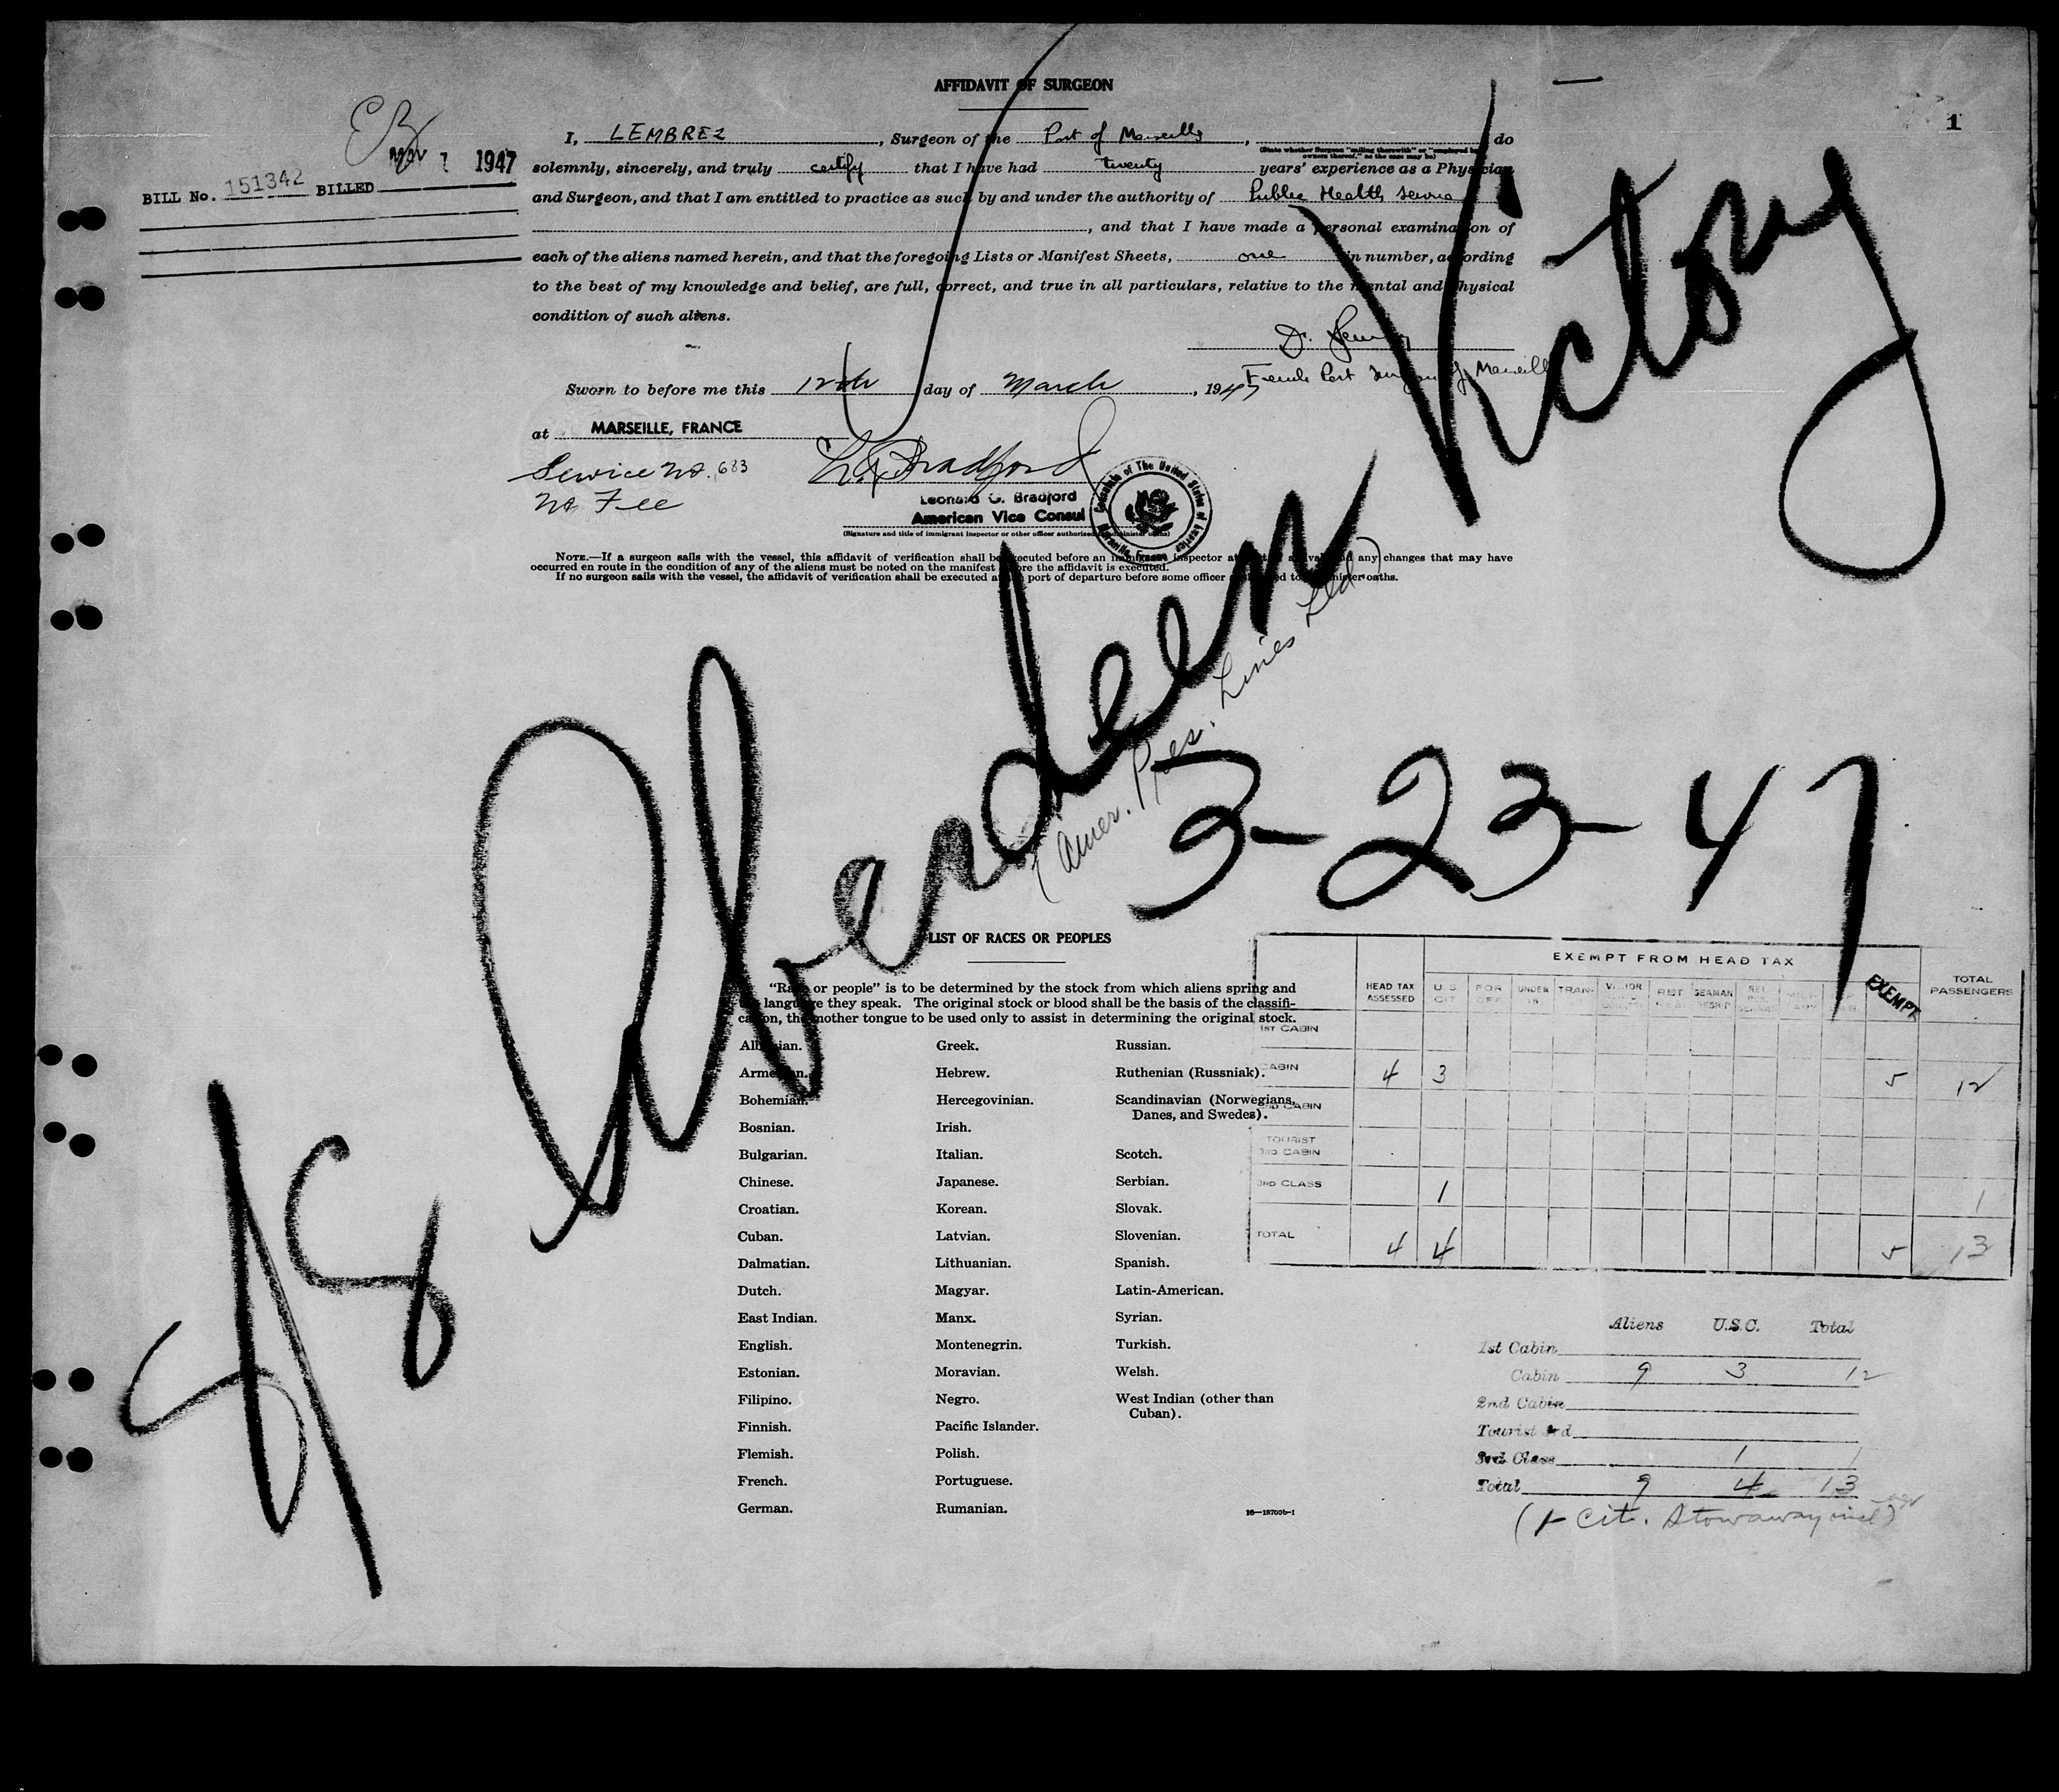 AFFIDAVIT OF SURGEON
1
I, LEMBREZ, Surgeon of the Port of Marseille, do
(State whether Surgeon "sailing therewith" or "employed by owners thereof," as the case may be)
solemnly, sincerely, and truly certify that I have had twenty years' experience as a Physician
and Surgeon, and that I am entitled to practice as such by and under the authority of Public Health Service
, and that I have made a personal examination of
each of the aliens named herein, and that the foregoing Lists or Manifest Sheets, one in number, according
to the best of my knowledge and belief, are full, correct, and true in all particulars, relative to the mental and physical
condition of such aliens.
1947
BILL No. 151342 BILLED
Dr.
French Port Surgeon of Marseille
Sworn to before me this 12th day of March, 1947
at MARSEILLE, FRANCE
Service No. 683
No Fee
L G Bradford
Leonard G. Bradford
American Vice Consul
(Signature and title of immigrant inspector or other officer authorized to administer oaths)
Consulate of The United States of America
Marseille, France
NOTE.—If a surgeon sails with the vessel, this affidavit of verification shall be executed before an immigrant inspector at port of arrival and any changes that may have
occurred en route in the condition of any of the aliens must be noted on the manifest before the affidavit is executed.
If no surgeon sails with the vessel, the affidavit of verification shall be executed at the port of departure before some officer authorized to administer oaths.
S/S Aberdeen Victory
(Amer. Pres. Lines Ltd)
3-23-47
LIST OF RACES OR PEOPLES
"Race or people" is to be determined by the stock from which aliens spring and
the language they speak. The original stock or blood shall be the basis of the classifi-
cation, the mother tongue to be used only to assist in determining the original stock.
Albanian.
Armenian.
Bohemian.
Bosnian.
Bulgarian.
Chinese.
Croatian.
Cuban.
Dalmatian.
Dutch.
East Indian.
English.
Estonian.
Filipino.
Finnish.
Flemish.
French.
German.
Greek.
Hebrew.
Hercegovinian.
Irish.
Italian.
Japanese.
Korean.
Latvian.
Lithuanian.
Magyar.
Manx.
Montenegrin.
Moravian.
Negro.
Pacific Islander.
Polish.
Portuguese.
Rumanian.
Russian.
Ruthenian (Russniak).
Scandinavian (Norwegians,
Danes, and Swedes).
Scotch.
Serbian.
Slovak.
Slovenian.
Spanish.
Latin-American.
Syrian.
Turkish.
Welsh.
West Indian (other than
Cuban).
16—18700b-1
EXEMPT FROM HEAD TAX
HEAD TAX ASSESSED U S CIT FOR OFF UNDER 16 TRAN- VISITOR RET SEAMAN EXEMPT TOTAL PASSENGERS
1ST CABIN
CABIN 4 3 5 12
2ND CABIN
TOURIST
3RD CABIN
3RD CLASS 1 1
TOTAL 4 4 5 13
Aliens U.S.C. Total
1st Cabin
Cabin 9 3 12
2nd Cabin
Tourist 3rd
3rd Class 1 1
Total 9 4 13
(1 Cit. Stowaway incl)